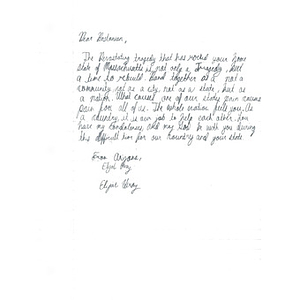 Dear Bostonian,
The Devastating tragedy that has rocked your home
state of Massachusetts is not only a tragedy, but
a time to rebuild. Band together as a not a
community not as a city, not as a state, but as
a nation. What causes one of our study pain causes
pain for all of us. The whole nation feels you. As
a country, it is our job to help each other. You
have my condolences, and may God be with you during
this difficult time for our country and your state.
From Arizona,
Elijah
Elijah